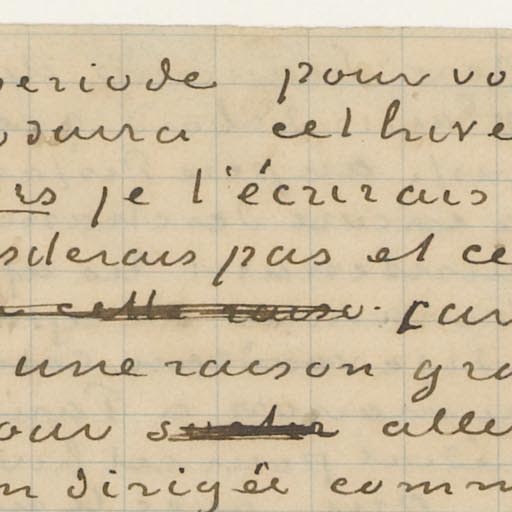 periode pour vo
oduira cet hive
rs je l'écrirais
sderais pas et ce
cette raiso. Car
une raison gra
our alle
n dirigée comm